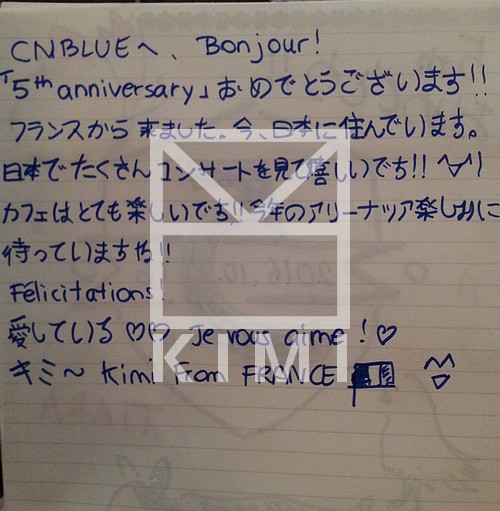 CNBLUEへ、Bonjour!
「5th anniversary」おめでとうございます!!
フランスから来ました。今、日本に住んでいます。
日本でたくさんコンサートを見て嬉しいでち!! ^▽^!
カフェはとても楽しいでち!! 今年のアリーナツア楽しみに
待っていまちゅ!!
Félicitations!
愛している♡♡ Je vous aime !♡
キミ~ Kimi From FRANCE
KIMI